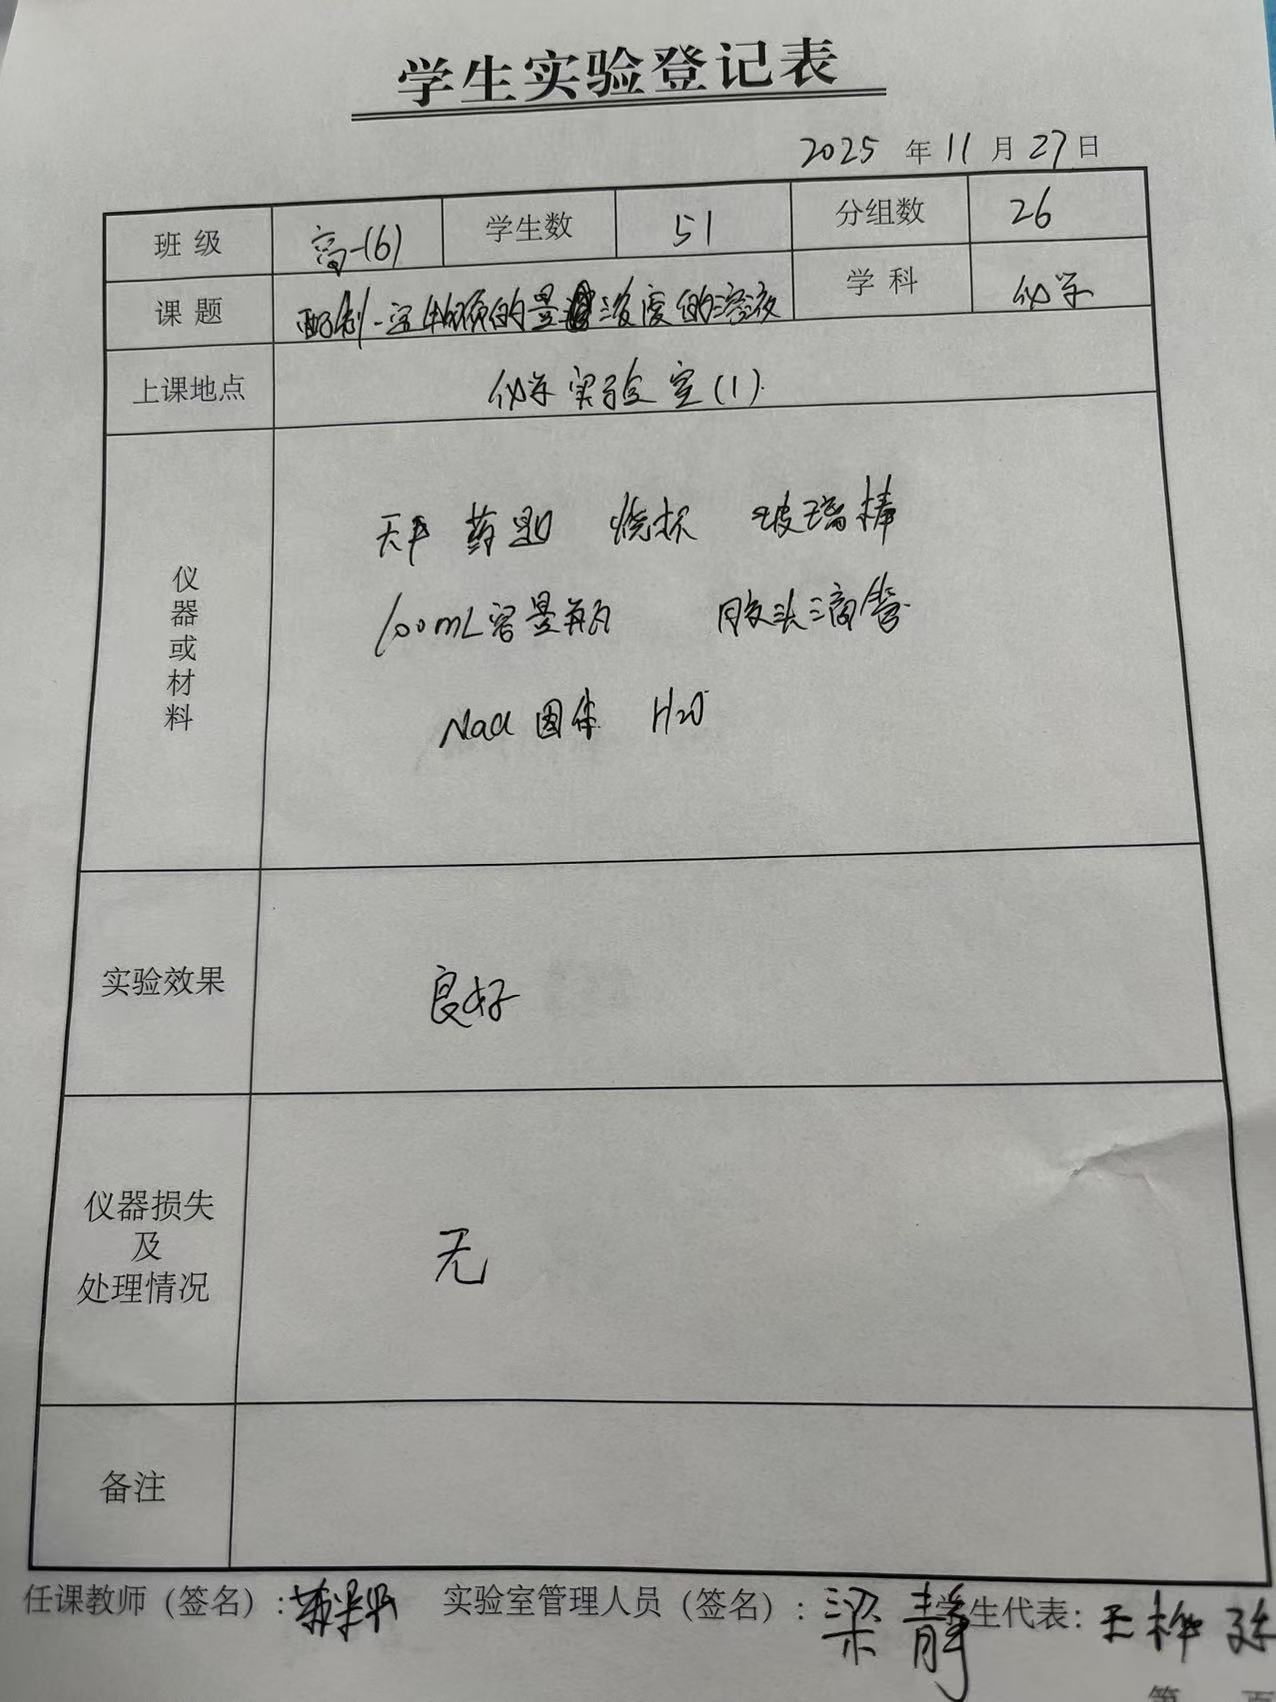 学生实验登记表
2025 年 11 月 27 日
班 级 高一(6) 学生数 51 分组数 26
课 题 配制一定物质的量浓度的溶液 学 科 化学
上课地点 化学实验室(1)
仪器或材料
天平 药匙 烧杯 玻璃棒
100mL容量瓶 胶头滴管
NaCl 固体 H2O
实验效果 良好
仪器损失
及
处理情况
无
备注
任课教师（签名）: 实验室管理人员（签名）: 梁静 学生代表: 王
第 页